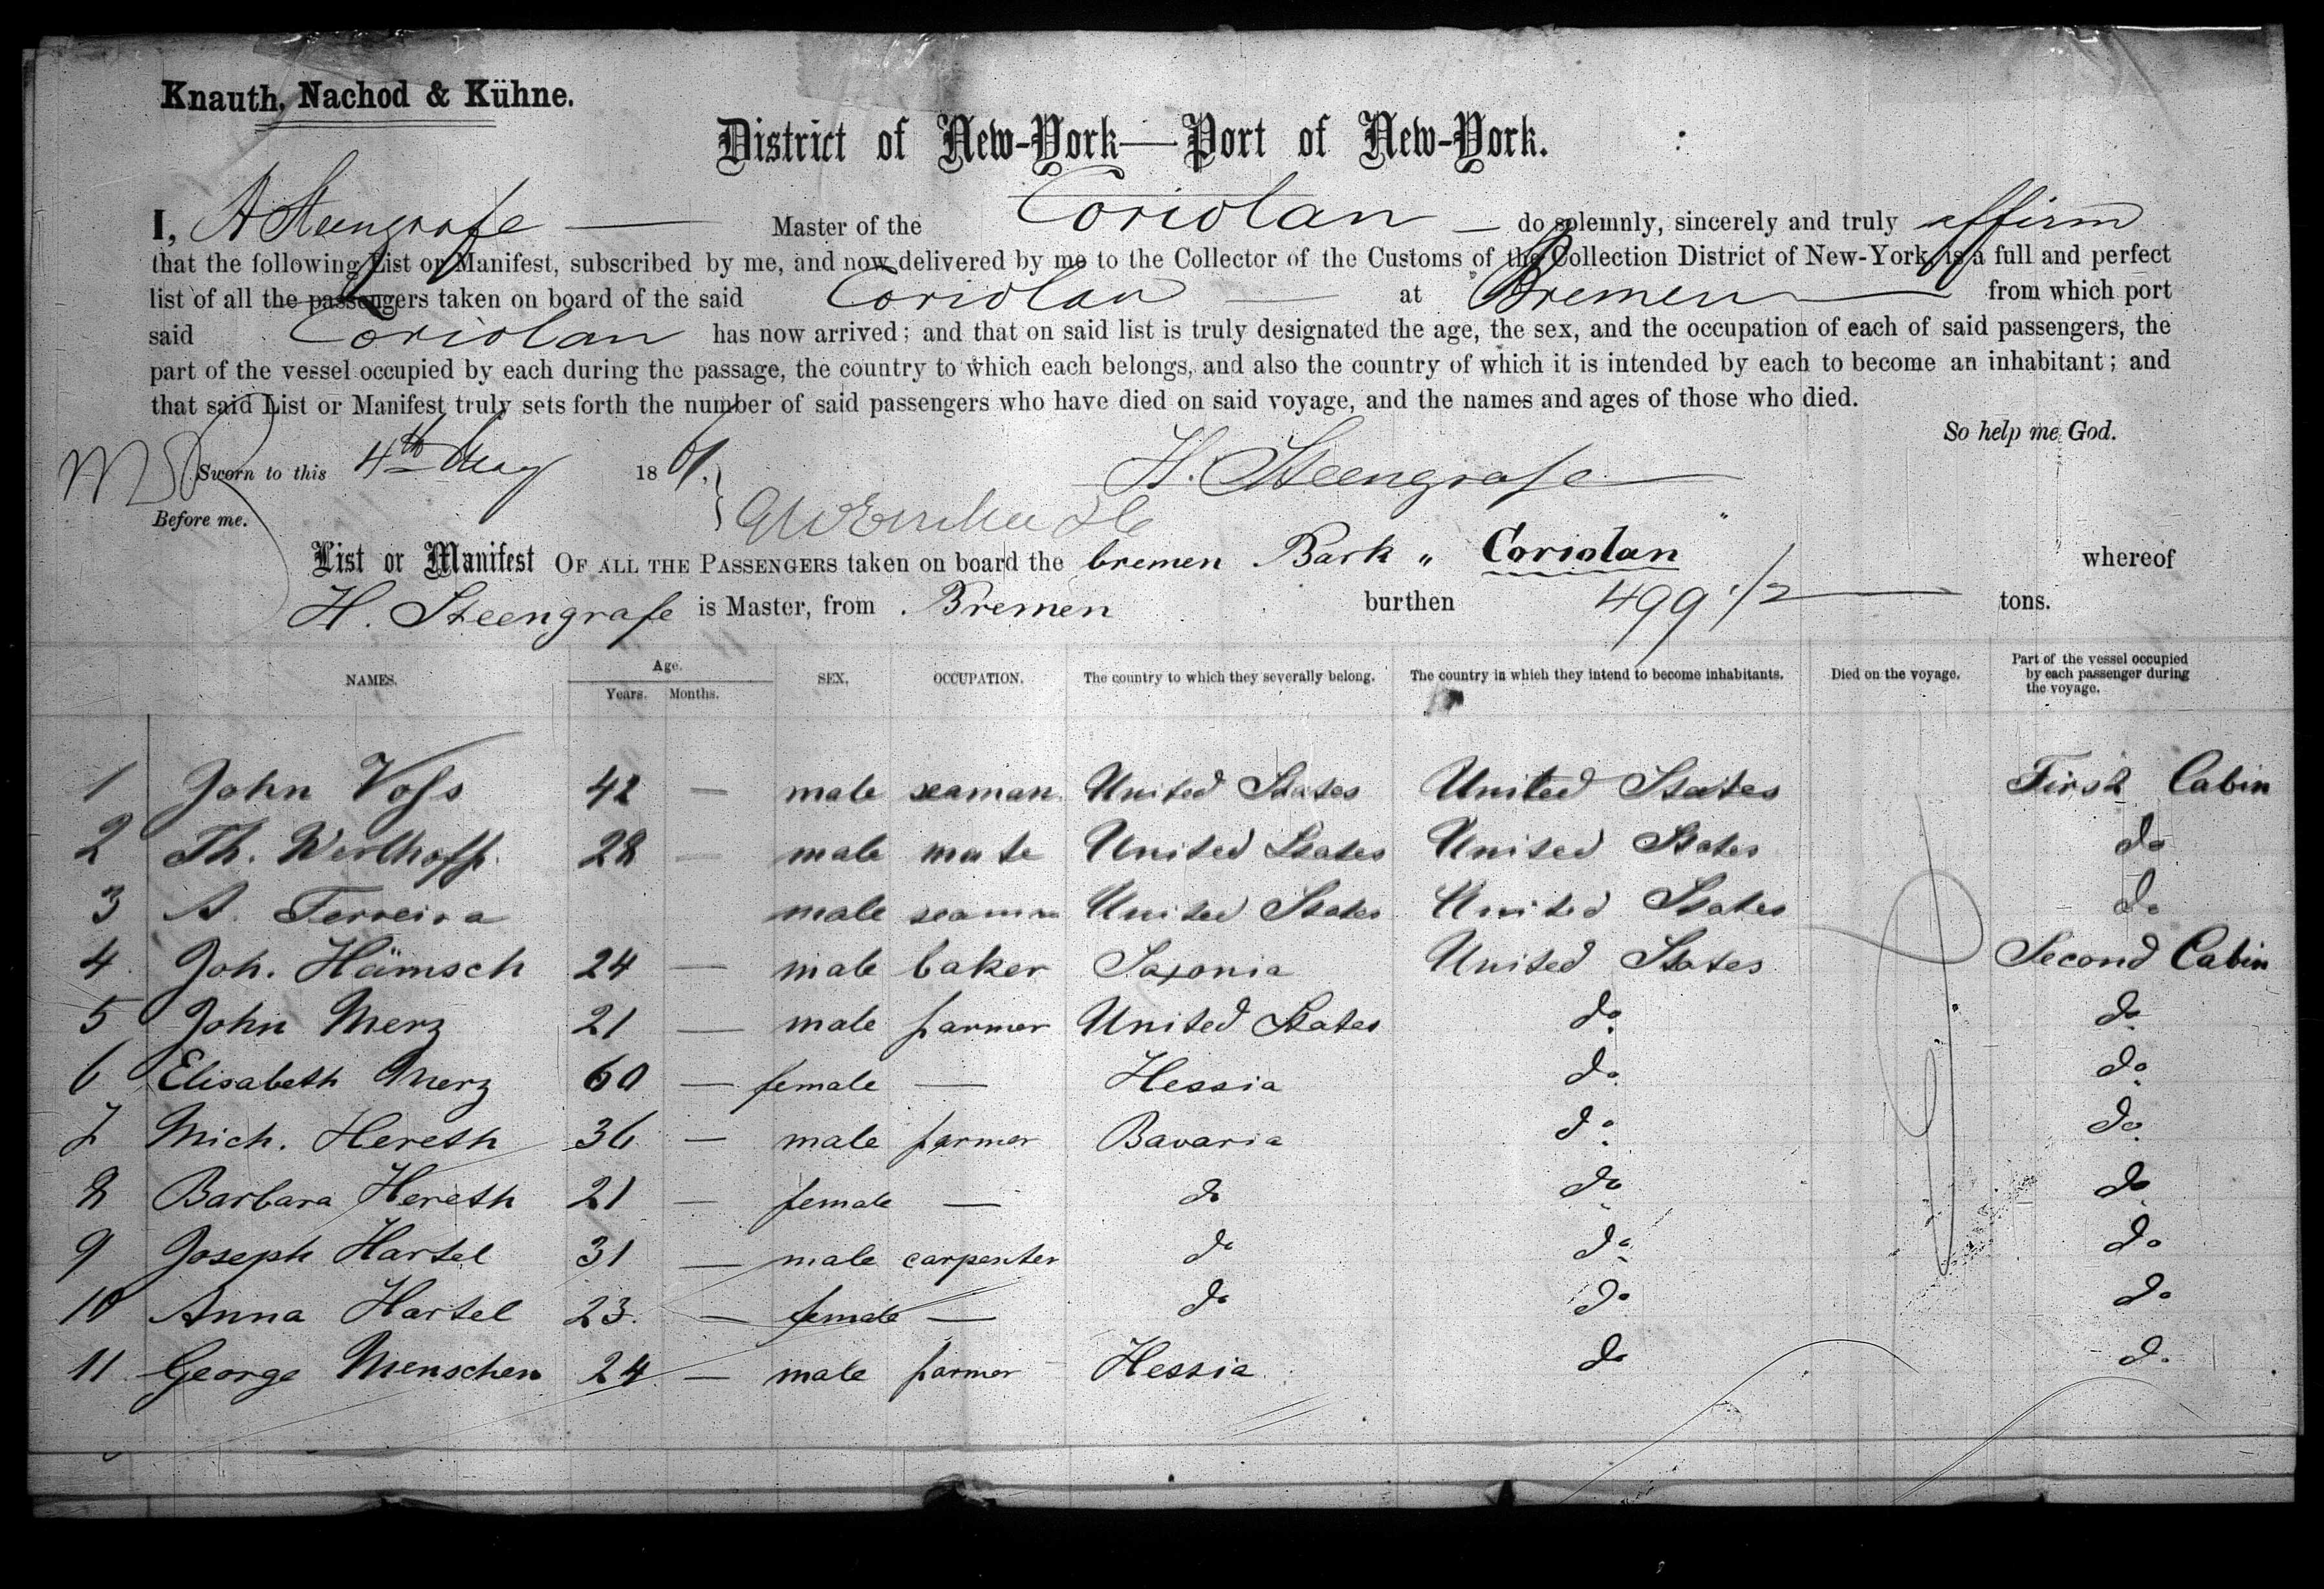 Knauth, Nachod & Kühne.
District of New-York—Port of New-York.
I, H Steengrafe — Master of the Coriolan — do solemnly, sincerely and truly affirm
that the following List or Manifest, subscribed by me, and now delivered by me to the Collector of the Customs of the Collection District of New-York, is a full and perfect
list of all the passengers taken on board of the said Coriolan — at Bremen — from which port
said Coriolan has now arrived; and that on said list is truly designated the age, the sex, and the occupation of each of said passengers, the
part of the vessel occupied by each during the passage, the country to which each belongs, and also the country of which it is intended by each to become an inhabitant; and
that said List or Manifest truly sets forth the number of said passengers who have died on said voyage, and the names and ages of those who died.
So help me God.
Sworn to this 4th May 1861. H. Steengrafe
Before me.
List or Manifest OF ALL THE PASSENGERS taken on board the bremen Bark " Coriolan " whereof
H. Steengrafe is Master, from Bremen burthen 499 1/2 tons.
NAMES. Age. Years. Months. SEX. OCCUPATION. The country to which they severally belong. The country in which they intend to become inhabitants. Died on the voyage. Part of the vessel occupied by each passenger during the voyage.
1 John Voss 42 — male seaman United States United States First Cabin
2 Th. 28 — male mate United States United States do
3 A. Ferreira male seaman United States United States do
4 Joh. Hämsch 24 — male baker Saxonia United States Second Cabin
5 John Merz 21 — male farmer United States do do
6 Elisabeth Merz 60 — female — Hessia do do
7 Mich. Hereth 36 — male farmer Bavaria do do
8 Barbara Hereth 21 — female — do do do
9 Joseph Hartel 31 — male carpenter do do do
10 Anna Hartel 23 — female — do do do
11 George Menschen 24 — male farmer Hessia do do